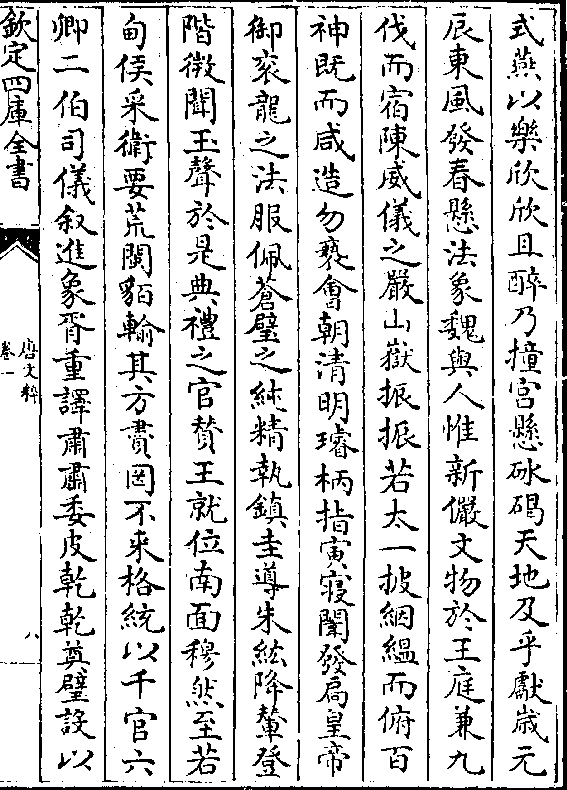 式燕以樂欣欣且醉乃撞宫懸砅磕天地及乎獻歳元
辰東風發春懸法象魏與人惟新儼文物於王庭兼九
伐而宿陳威儀之嚴山嶽振振若太一披絪緼而俯百
神既而咸造勿䙝會朝清明璿柄指寅寢闈發扃皇帝
御衮龍之法服佩蒼璧之純精執鎮圭導朱紘降輦登
階微聞玉聲於是典禮之官賛王就位南面穆然至若
甸侯采衛要荒閩貊輸其方賮罔不来格統以千官六
卿二伯司儀叙進象胥重譯肅肅委皮乾乾奠璧設以
欽定四庫全書
唐文粹
卷一
八